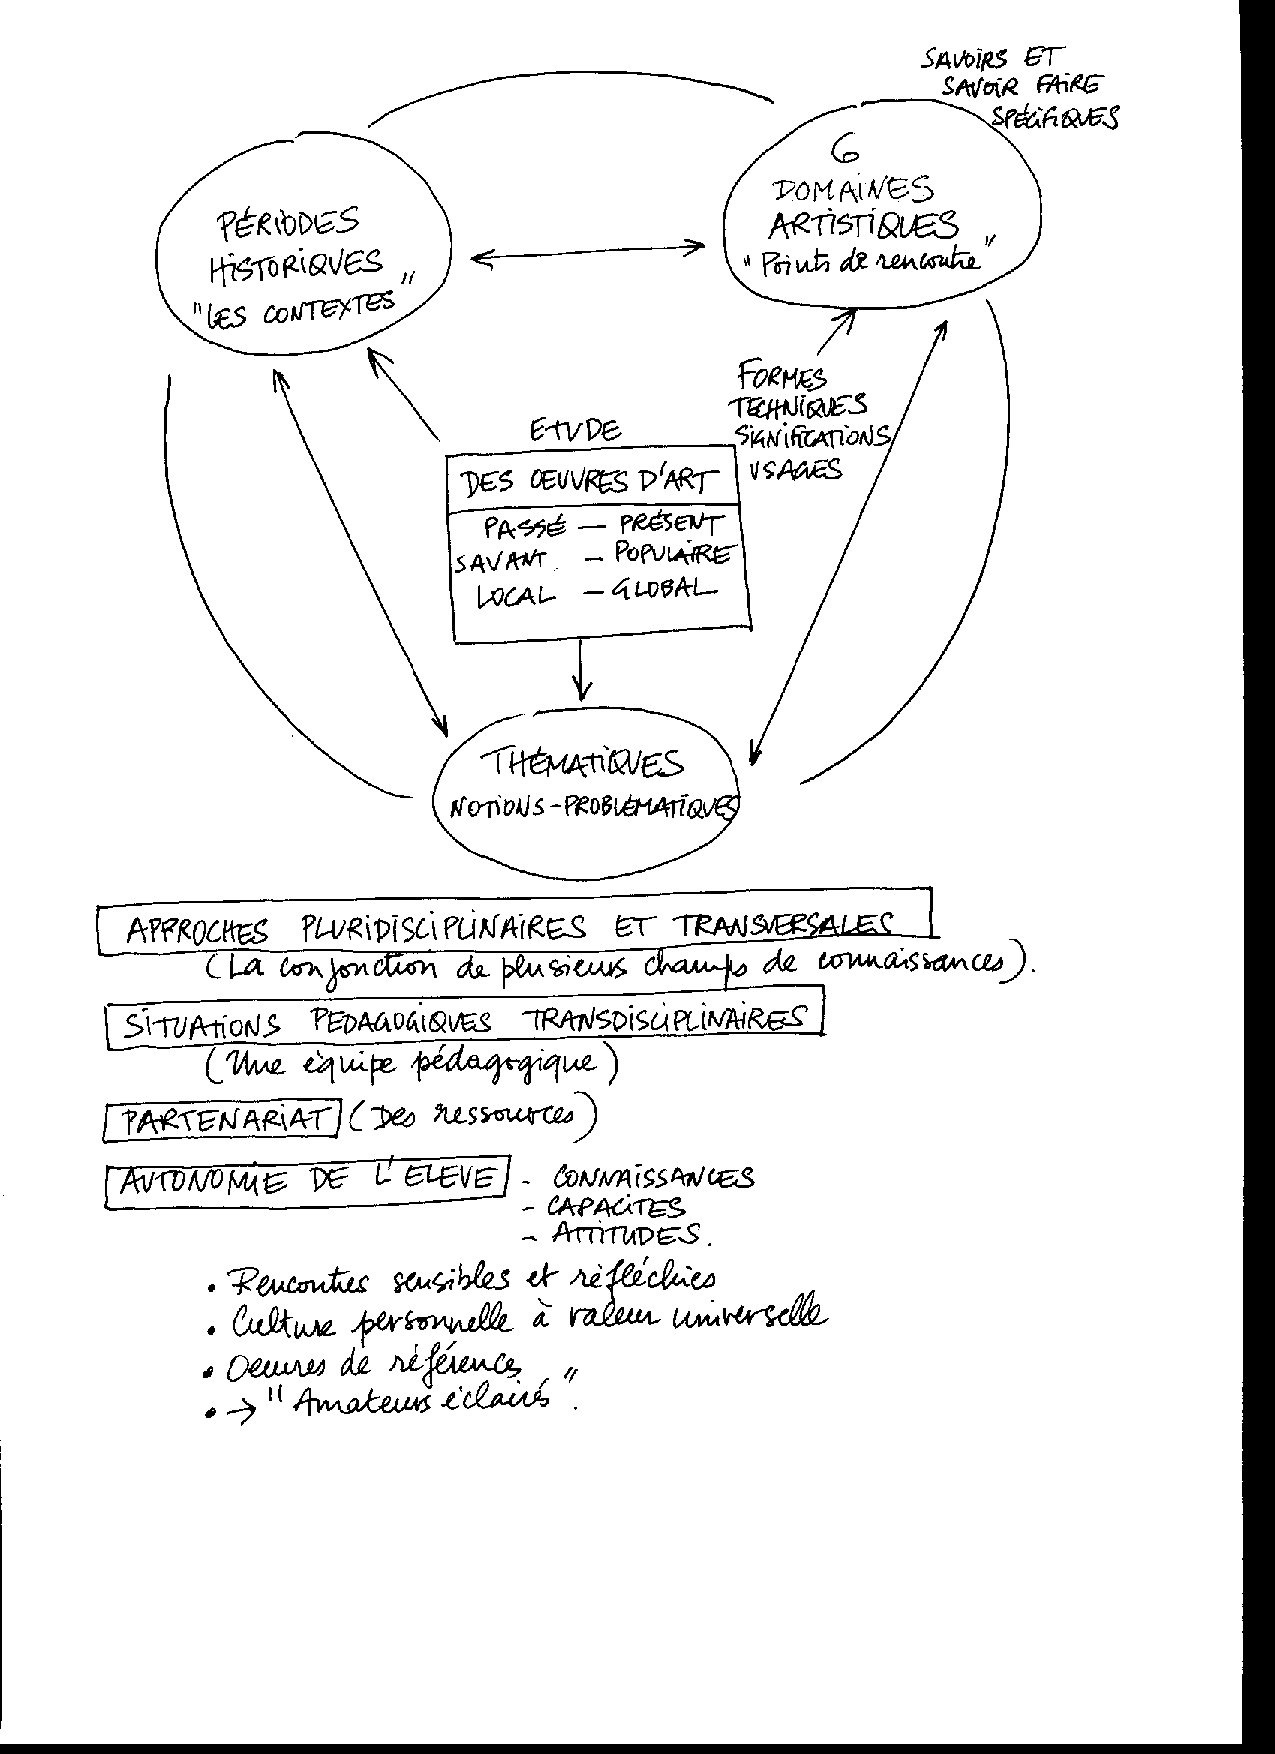 SAVOIRS ET
SAVOIR FAIRE
SPÉCIFIQUES
PÉRIODES
HISTORIQUES
"LES CONTEXTES"
6
DOMAINES
ARTISTIQUES
"Points de rencontre"
FORMES
TECHNIQUES
SIGNIFICATIONS
USAGES
ETUDE
DES OEUVRES D'ART
PASSÉ — PRÉSENT
SAVANT. — POPULAIRE
LOCAL — GLOBAL
THÉMATIQUES
NOTIONS-PROBLÉMATIQUES
APPROCHES PLURIDISCIPLINAIRES ET TRANSVERSALES
(La conjonction de plusieurs champs de connaissances).
SITUATIONS PEDAGOGIQUES TRANSDISCIPLINAIRES
(Une équipe pédagogique)
PARTENARIAT (Des ressources)
AUTONOMIE DE L'ELEVE - CONNAISSANCES
- CAPACITES
- ATTITUDES.
• Rencontres sensibles et réfléchies
• Culture personnelle à valeur universelle
• Oeuvres de référence
• → "Amateurs éclairés".